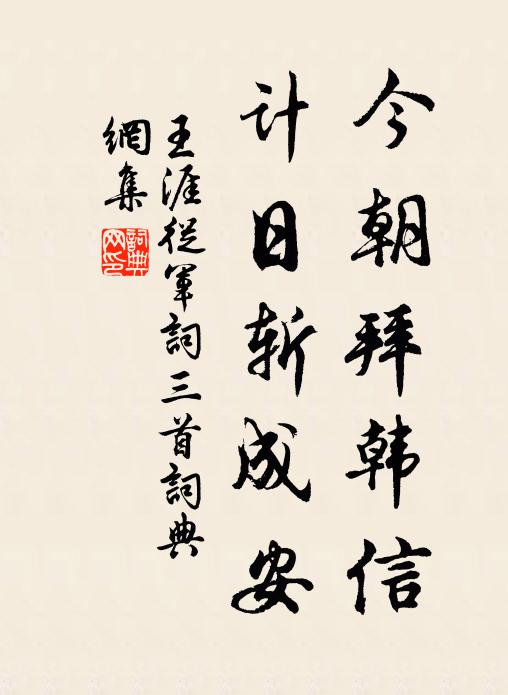 今朝拜韩信
计日斩成安
王涯從軍詞三首詞典
網集
詞典
网印